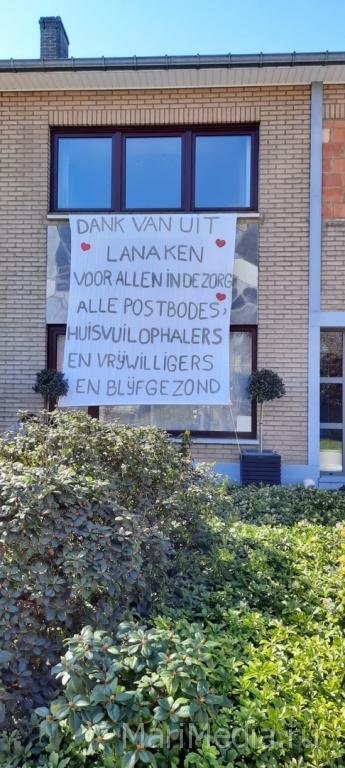 DANK VAN UIT
LANAKEN
VOOR ALLEN IN DE ZORG
ALLE POSTBODES,
HUISVUILOPHALERS
EN VRIJWILLIGERS
EN BLIJF GEZOND
MariMedia.ru